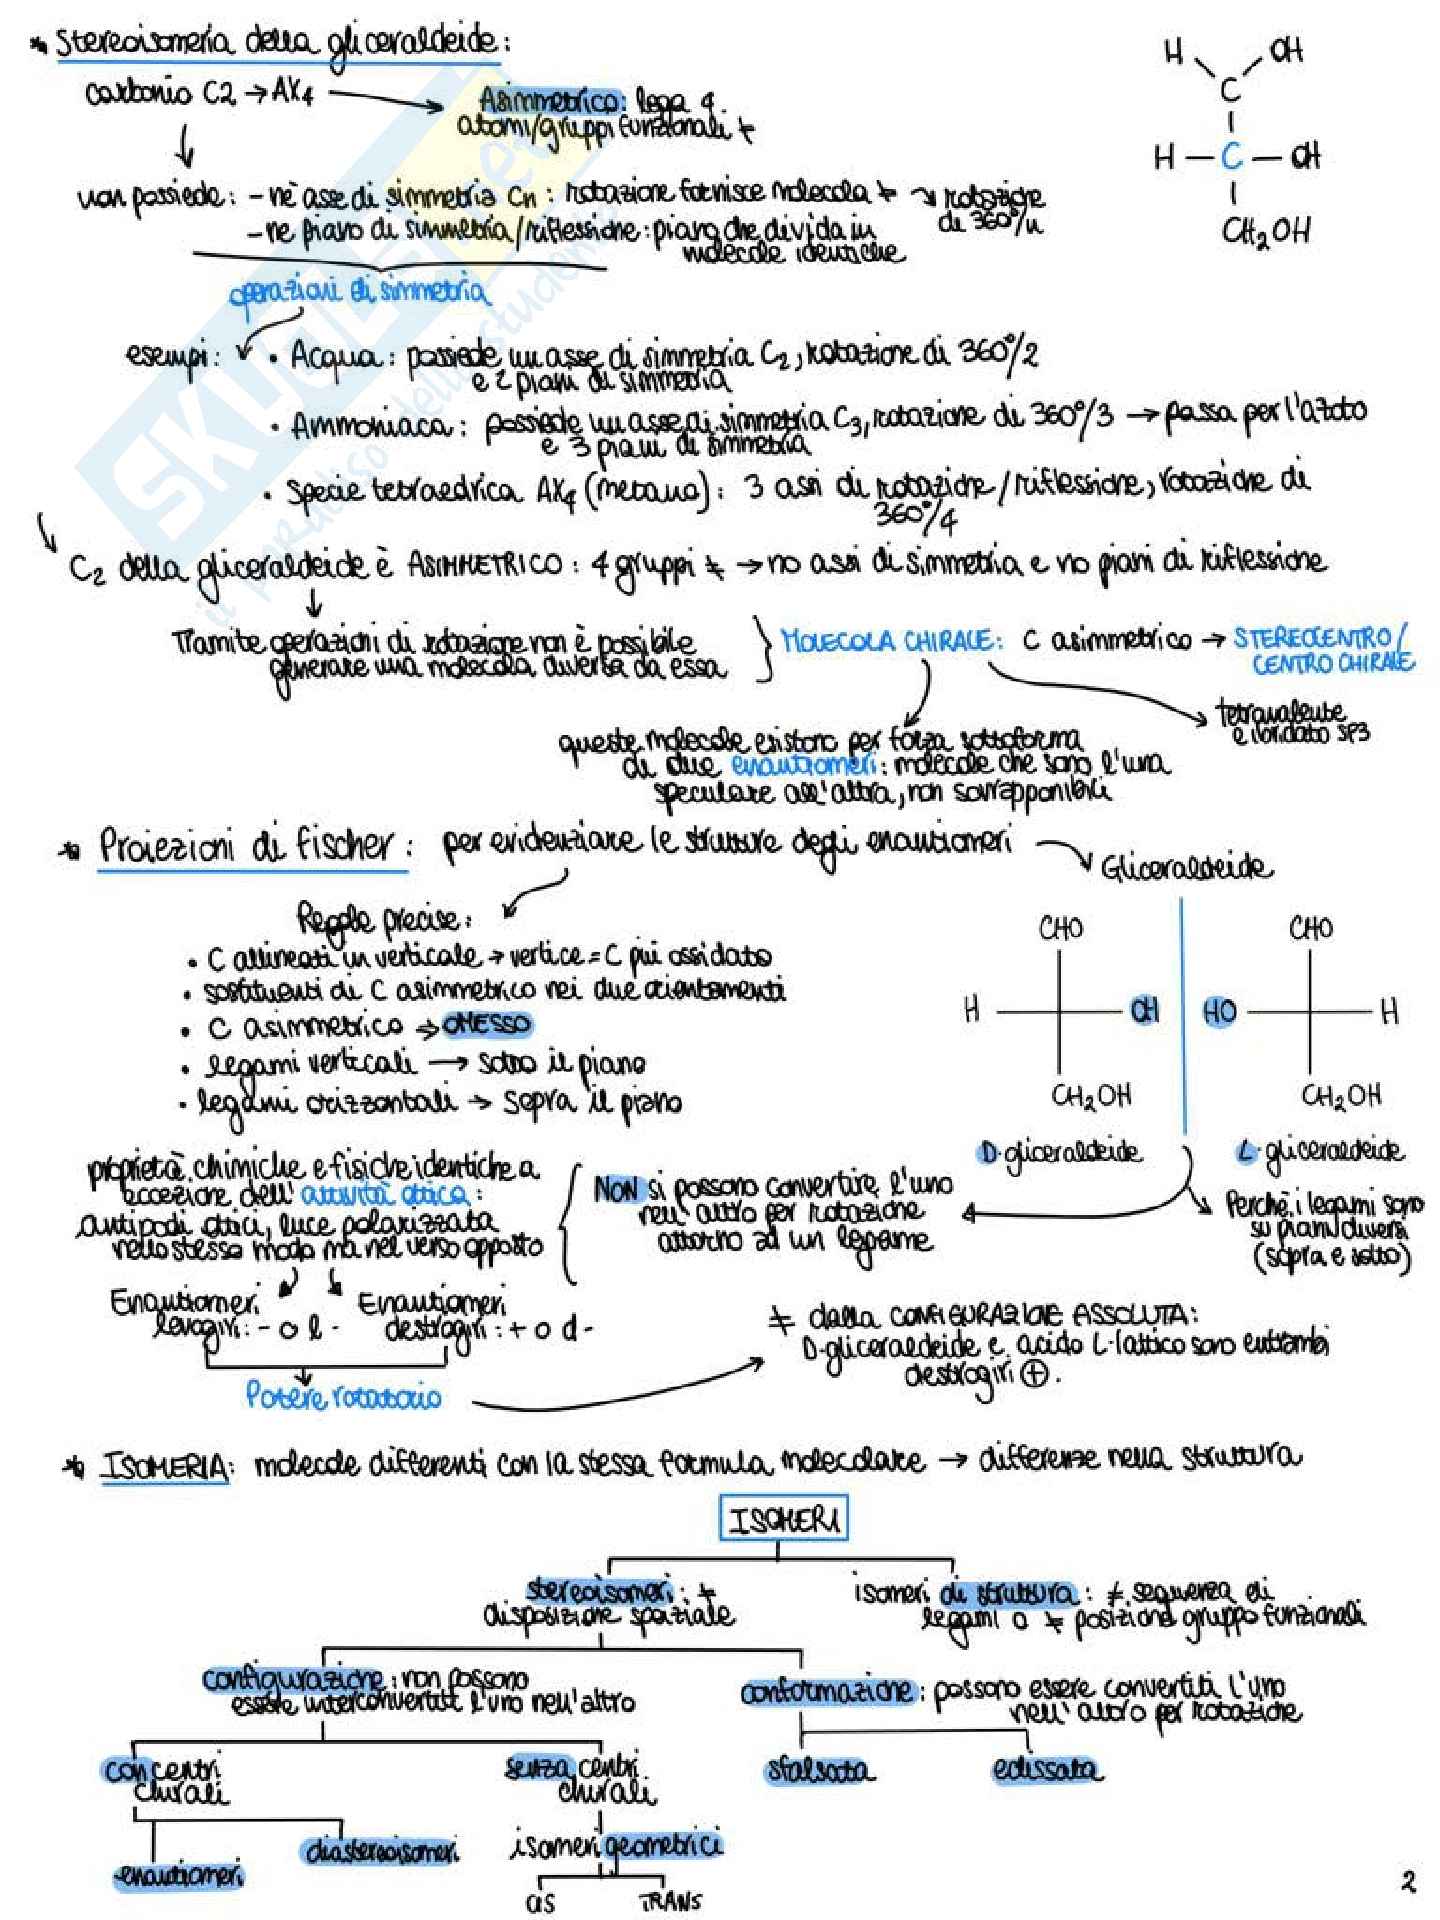 * Stereoisomeria della gliceraldeide:
carbonio C2 → AX4 → Asimmetrico: lega 4
atomi/gruppi funzionali ≠
H OH
C
H — C — OH
CH2OH
non possiede: - nè asse di simmetria Cn: rotazione fornisce molecola ≠ → rotazione
di 360°/n
- ne piano di simmetria/riflessione: piano che divida in
molecole identiche
operazioni di simmetria
esempi: • Acqua: possiede un asse di simmetria C2, rotazione di 360°/2
e 2 piani di simmetria
• Ammoniaca: possiede un asse di simmetria C3, rotazione di 360°/3 → passa per l'azoto
e 3 piani di simmetria
• Specie tetraedrica AX4 (metano): 3 assi di rotazione/riflessione, rotazione di
360°/4
C2 della gliceraldeide è ASIMMETRICO: 4 gruppi ≠ → no assi di simmetria e no piani di riflessione
Tramite operazioni di rotazione non è possibile
generare una molecola diversa da essa
MOLECOLA CHIRALE: C asimmetrico → STEREOCENTRO/
CENTRO CHIRALE
tetravalente
e ibridato SP3
queste molecole esistono per forza sottoforma
di due enantiomeri: molecole che sono l'una
speculare all'altra, non sovrapponibili
* Proiezioni di Fischer: per evidenziare le strutture degli enantiomeri
Gliceraldeide
Regole precise:
• C allineati in verticale → vertice = C più ossidato
• sostituenti di C asimmetrico nei due orientamenti
• C asimmetrico → OMESSO
• legami verticali → sotto il piano
• legami orizzontali → sopra il piano
CHO CHO
H OH HO H
CH2OH CH2OH
D-gliceraldeide L-gliceraldeide
proprietà chimiche e fisiche identiche a
eccezione dell'attività ottica:
antipodi ottici, luce polarizzata
nello stesso modo ma nel verso opposto
NON si possono convertire l'uno
nell'altro per rotazione
attorno ad un legame
Perchè i legami sono
su piani diversi
(sopra e sotto)
Enantiomeri
levogiri: - o l -
Enantiomeri
destrogiri: + o d -
Potere rotatorio
≠ dalla CONFIGURAZIONE ASSOLUTA:
D-gliceraldeide e acido L-lattico sono entrambi
destrogiri ⊕.
* ISOMERIA: molecole differenti con la stessa formula molecolare → differenze nella struttura
ISOMERI
stereoisomeri: ≠
disposizione spaziale
isomeri di struttura: ≠ sequenza di
legami o ≠ posizione gruppo funzionali
configurazione: non possono
essere interconvertiti l'uno nell'altro
conformazione: possono essere convertiti l'uno
nell'altro per rotazione
con centri
chirali
senza centri
chirali
sfalsata
eclissata
enantiomeri
diastereoisomeri
isomeri geometrici
CIS TRANS
2